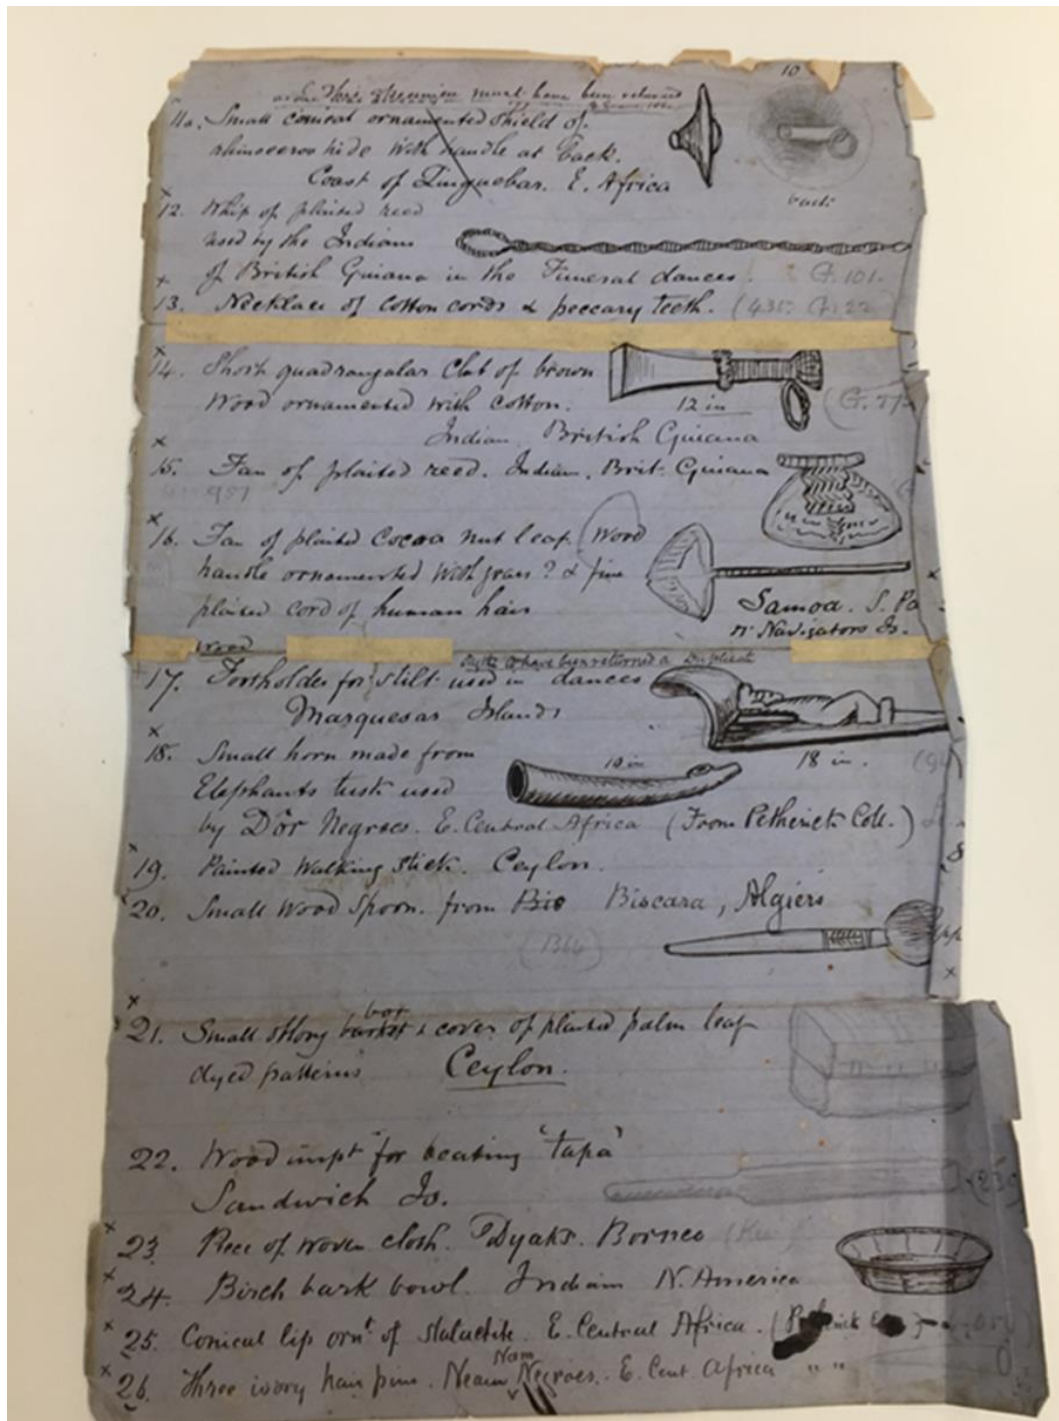 10
This specimen must have been returned
11a. Small conical ornamented shield of
rhinoceros hide with handle at back.
Coast of Zinguebar. E. Africa
back
x
12. Whip of plaited reed
used by the Indians
of British Guiana in the Funeral dances G. 101.
x
13. Necklace of cotton cords & peccary teeth. (435. G. 22
x
14. Short quadrangular Club of brown
Wood ornamented with cotton. 12 in (G.
Indian British Guiana
x
15. Fan of plaited reed. Indian. Brit. Guiana
957
x
16. Fan of plaited Cocoa nut leaf (Wood
handle ornamented with grass? & fine
plaited cord of human hair
Samoa. S. Pa
or Navigators Is.
wood
to have been returned a Duplicate
17. Footholder for stilt used in dances
Marquesas Islands
18 in.
x
18. Small horn made from
10 in
Elephants tusk used
by Dôr Negroes. E. Central Africa (From Petherick Coll.)
x
19. Painted Walking stick. Ceylon.
x
20. Small Wood Spoon. from Bis Biscara, Algiers
(1366)
x
box
21. Small strong basket & cover of plaited palm leaf
dyed patterns Ceylon.
22. Wood impt for beating 'tapa'
Sandwich Is.
x
23 Piece of woven cloth. Dyaks. Borneo
x
24. Birch bark bowl. Indian N. America
x
25. Conical lip ornt. of stalactite. E. Central Africa.
x
Nam
26. Three ivory hair pins. Neam Negroes. E. Cent. Africa " "